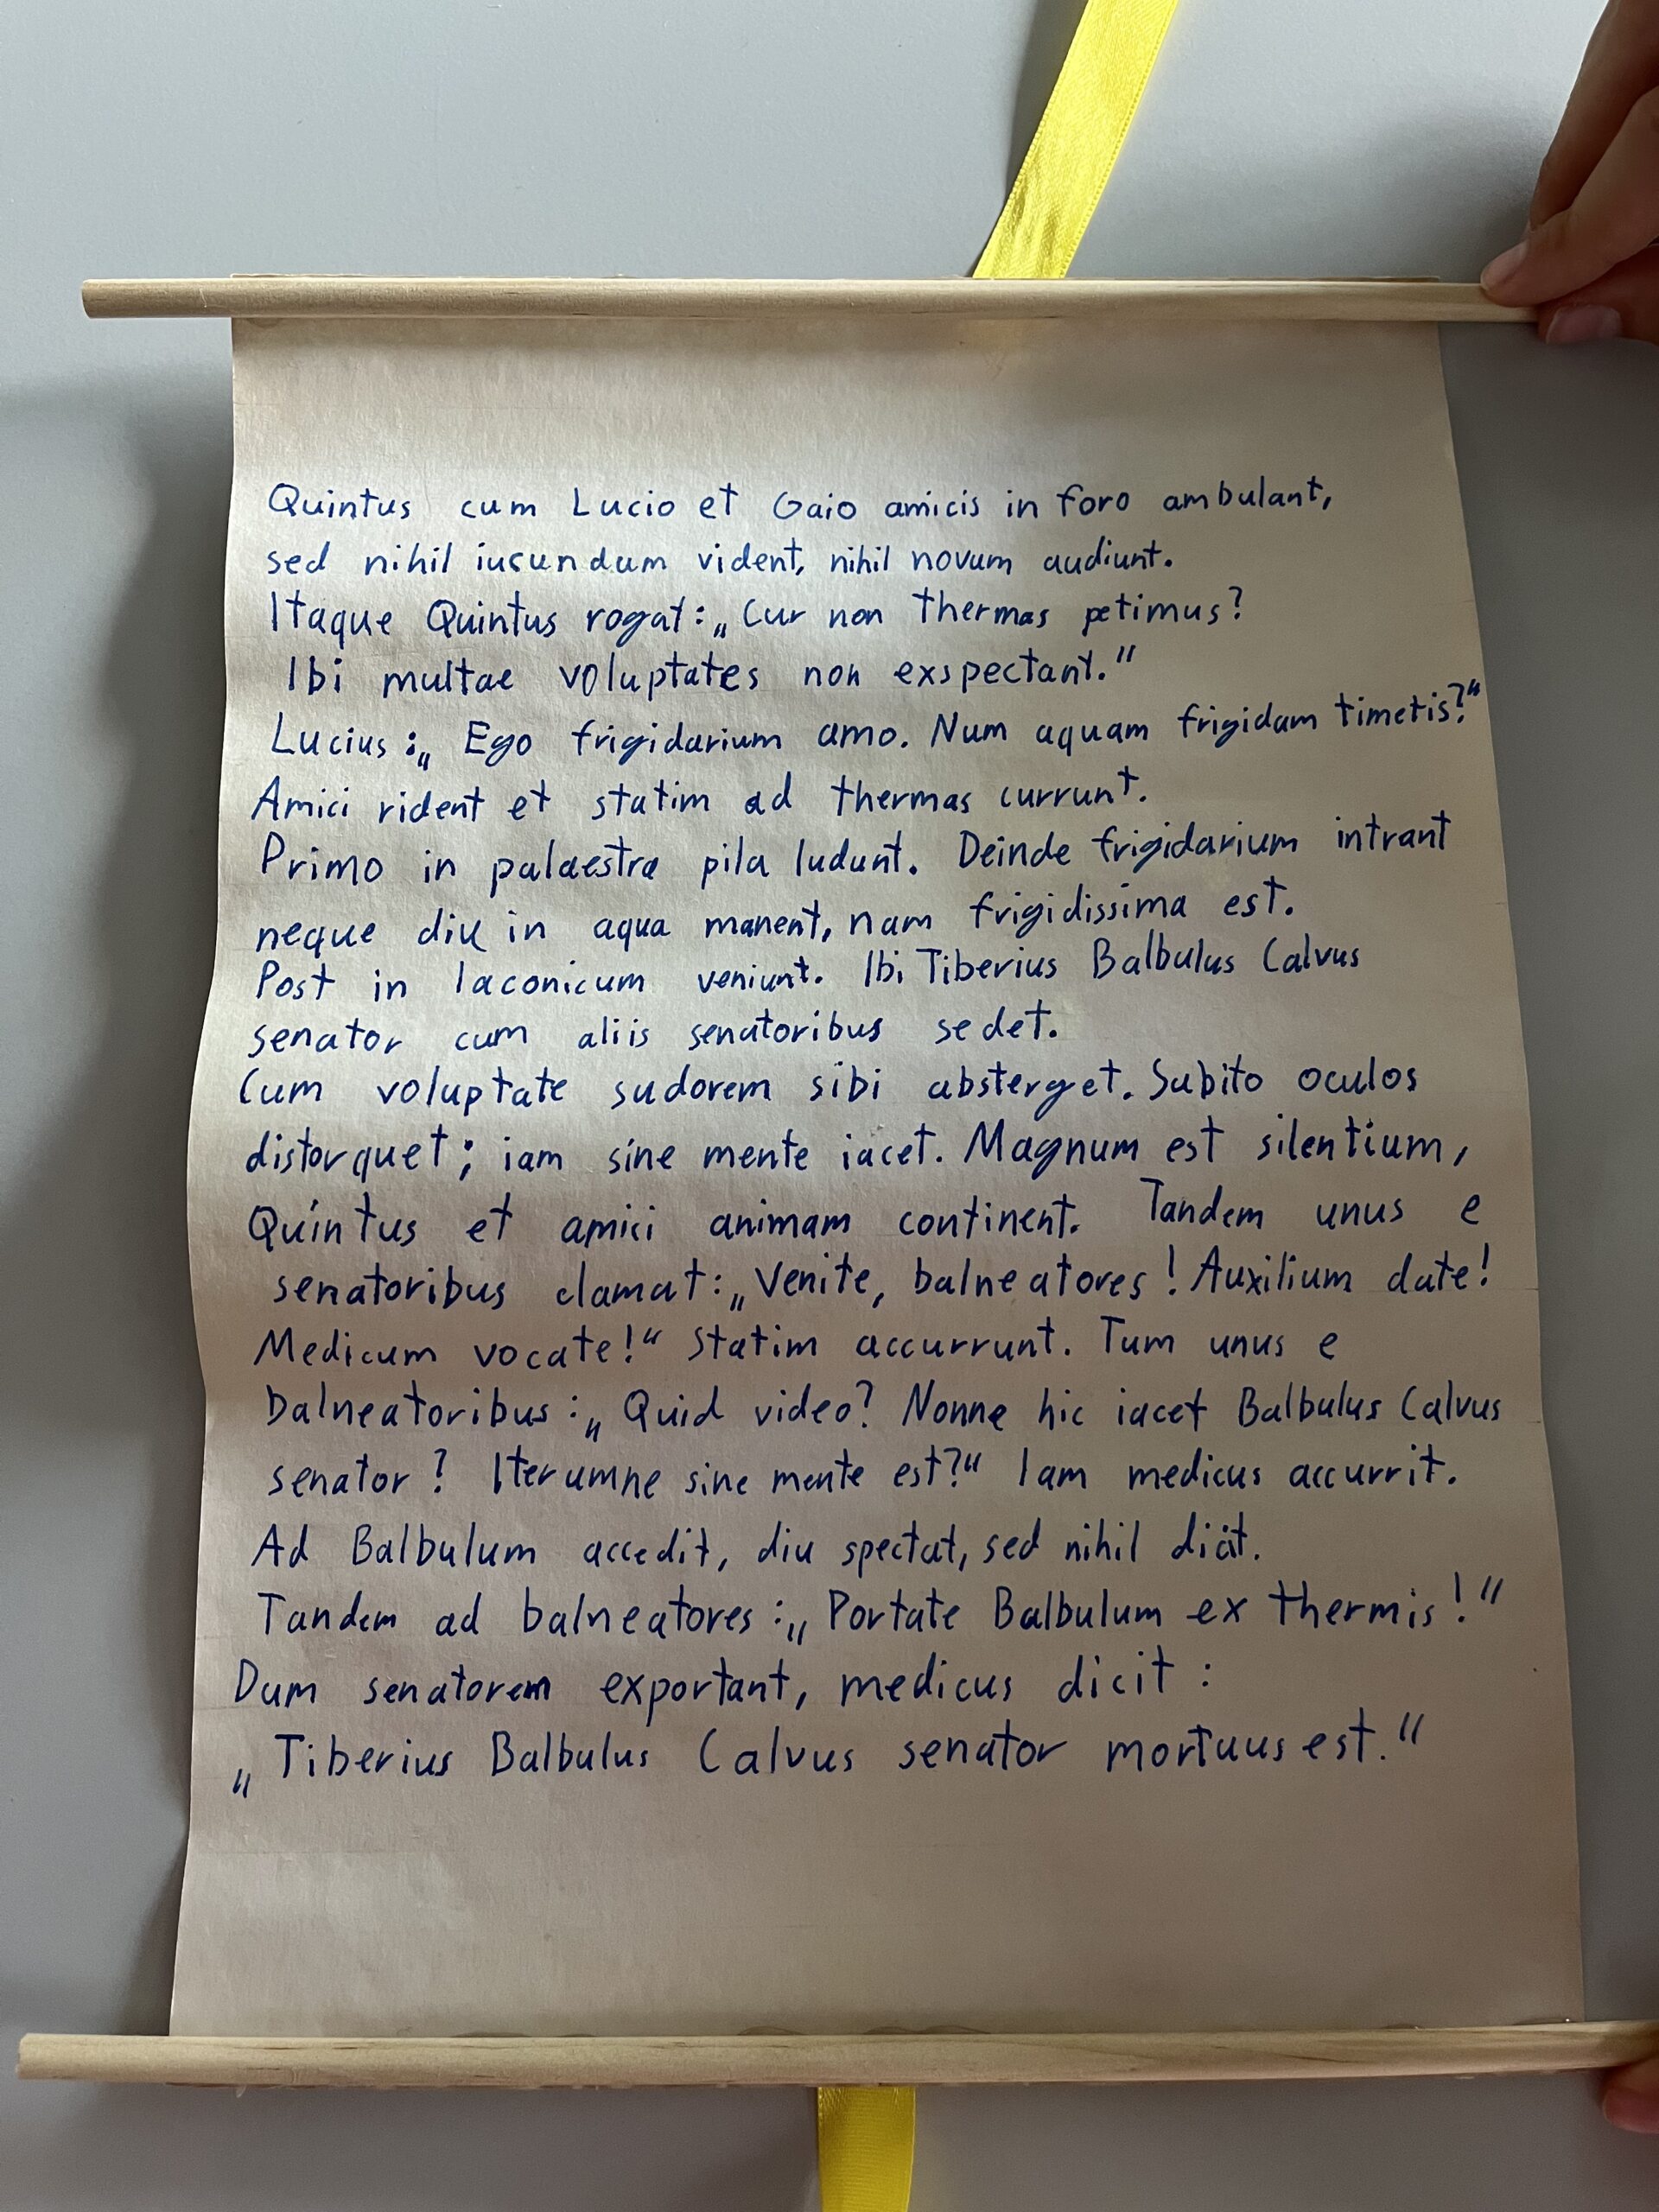 Quintus cum Lucio et Gaio amicis in foro ambulant,
sed nihil iucundum vident, nihil novum audiunt.
Itaque Quintus rogat: „Cur non thermas petimus?
Ibi multae voluptates non exspectant."
Lucius: „Ego frigidarium amo. Num aquam frigidam timetis?"
Amici rident et statim ad thermas currunt.
Primo in palaestra pila ludunt. Deinde frigidarium intrant
neque diu in aqua manent, nam frigidissima est.
Post in laconicum veniunt. Ibi Tiberius Balbulus Calvus
senator cum aliis senatoribus sedet.
Cum voluptate sudorem sibi absterget. Subito oculos
distorquet; iam sine mente iacet. Magnum est silentium,
Quintus et amici animam continent. Tandem unus e
senatoribus clamat: „Venite, balneatores! Auxilium date!
Medicum vocate!" Statim accurrunt. Tum unus e
balneatoribus: „Quid video? Nonne hic iacet Balbulus Calvus
senator? Iterumne sine mente est?" Iam medicus accurrit.
Ad Balbulum accedit, diu spectat, sed nihil dicit.
Tandem ad balneatores: „Portate Balbulum ex thermis!"
Dum senatorem exportant, medicus dicit:
„Tiberius Balbulus Calvus senator mortuus est."